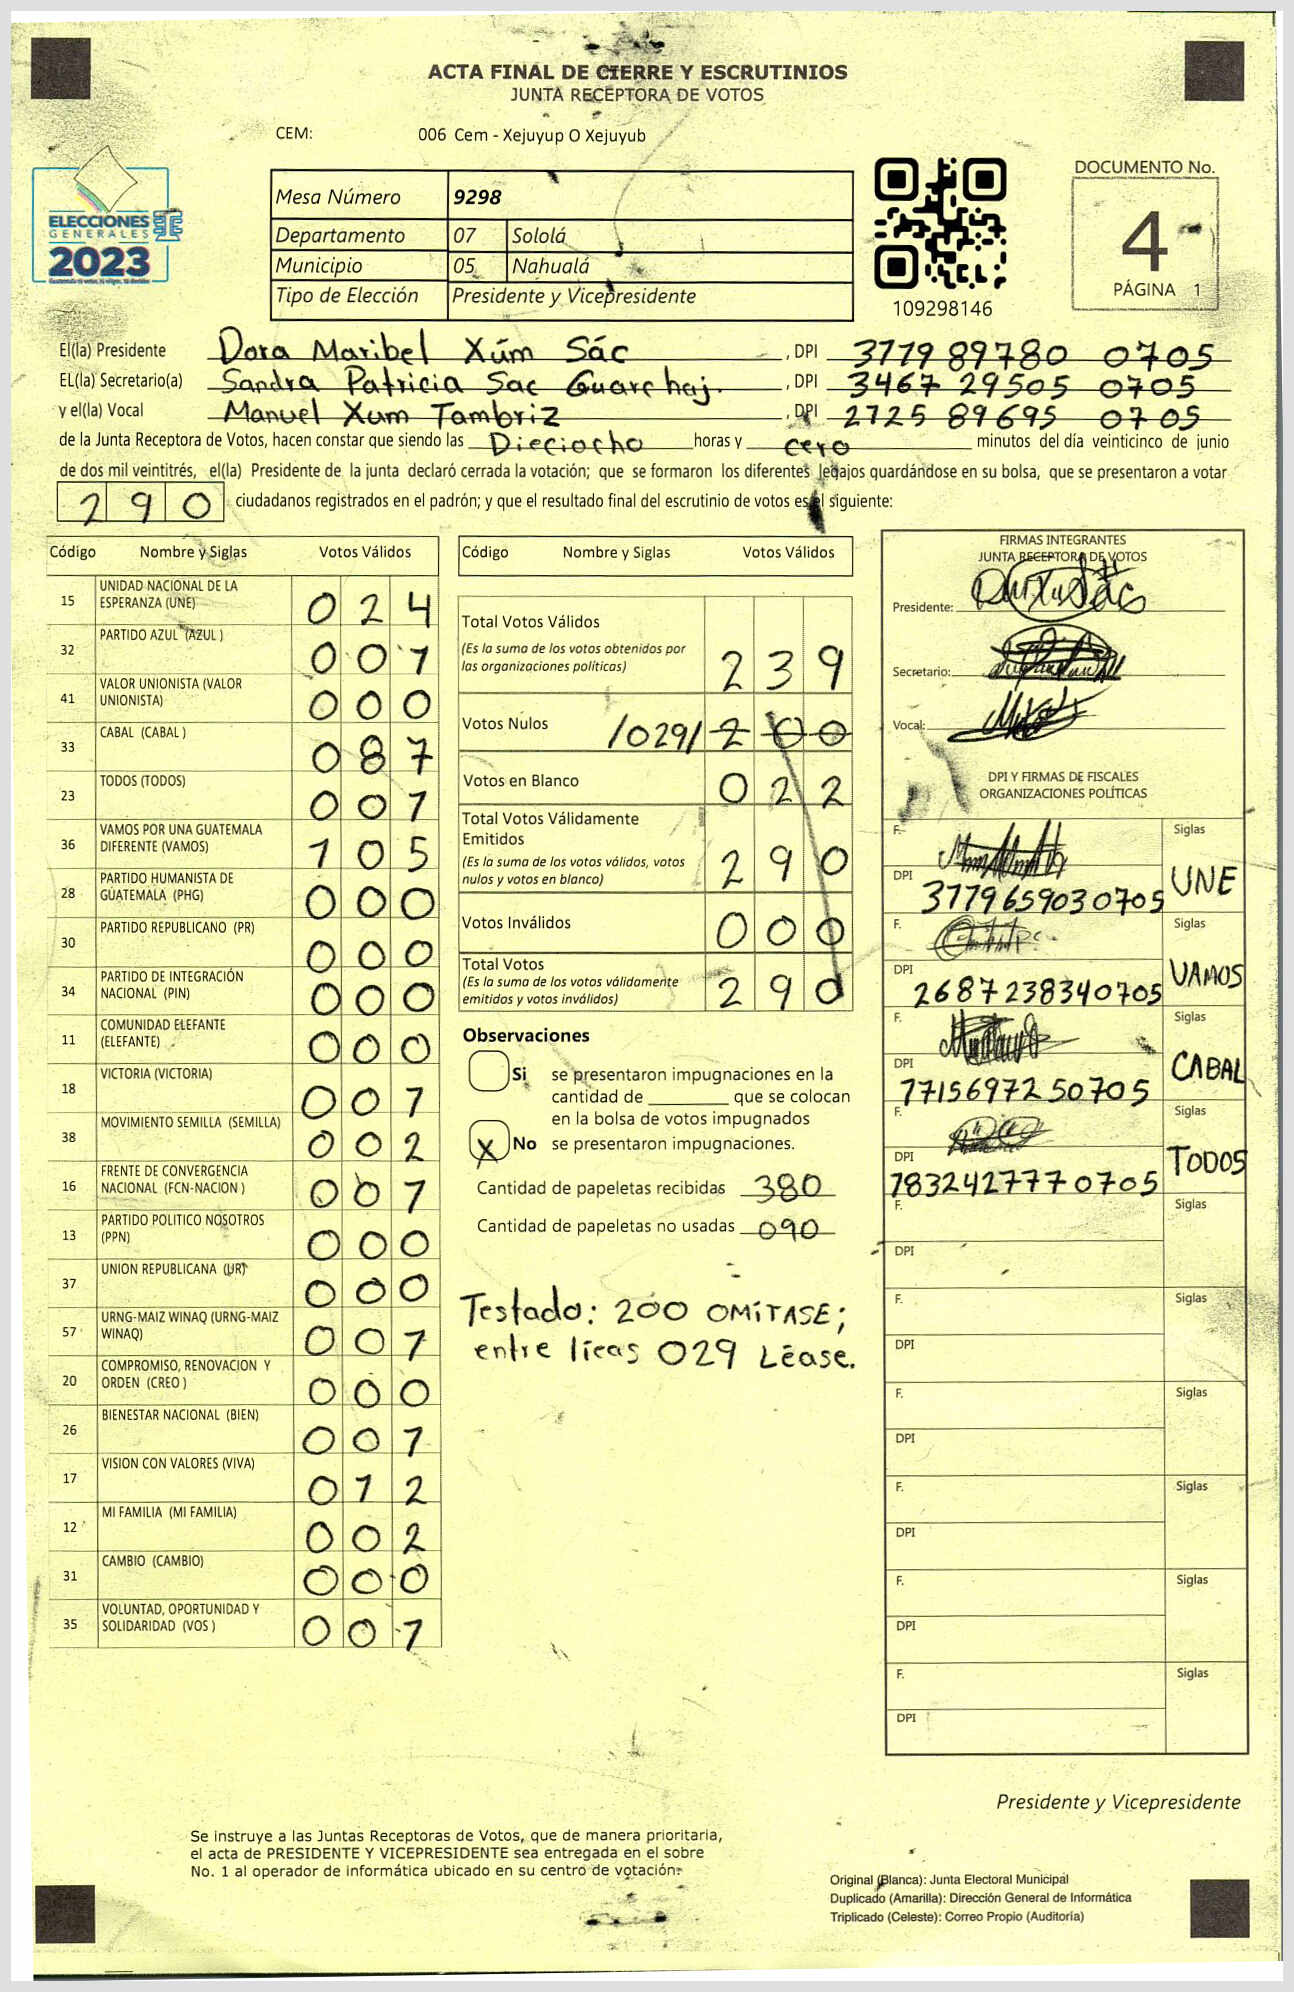 ACTA FINAL DE CIERRE Y ESCRUTINIOS
JUNTA RECEPTORA DE VOTOS
CEM: 006 Cem - Xejuyup O Xejuyub
ELECCIONES
GENERALES
2023
Mesa Número 9298
Departamento 07 Sololá
Municipio 05 Nahualá
Tipo de Elección Presidente y Vicepresidente
109298146
DOCUMENTO No.
4
PÁGINA 1
El(la) Presidente Dora Maribel Xúm Sác , DPI 3779 89780 0705
EL(la) Secretario(a) Sandra Patricia Sac Guarchaj. , DPI 3467 29505 0705
y el(la) Vocal Manuel Xum Tambriz , DPI 2725 89695 0705
de la Junta Receptora de Votos, hacen constar que siendo las Dieciocho horas y cero minutos del día veinticinco de junio
de dos mil veintitrés, el(la) Presidente de la junta declaró cerrada la votación; que se formaron los diferentes legajos quardándose en su bolsa, que se presentaron a votar
290 ciudadanos registrados en el padrón; y que el resultado final del escrutinio de votos es el siguiente:
Código Nombre y Siglas Votos Válidos
15 UNIDAD NACIONAL DE LA ESPERANZA (UNE) 024
32 PARTIDO AZUL (AZUL ) 001
41 VALOR UNIONISTA (VALOR UNIONISTA) 000
33 CABAL (CABAL ) 087
23 TODOS (TODOS) 001
36 VAMOS POR UNA GUATEMALA DIFERENTE (VAMOS) 105
28 PARTIDO HUMANISTA DE GUATEMALA (PHG) 000
30 PARTIDO REPUBLICANO (PR) 000
34 PARTIDO DE INTEGRACIÓN NACIONAL (PIN) 000
11 COMUNIDAD ELEFANTE (ELEFANTE) 000
18 VICTORIA (VICTORIA) 001
38 MOVIMIENTO SEMILLA (SEMILLA) 002
16 FRENTE DE CONVERGENCIA NACIONAL (FCN-NACION ) 001
13 PARTIDO POLITICO NOSOTROS (PPN) 000
37 UNION REPUBLICANA (UR) 000
57 URNG-MAIZ WINAQ (URNG-MAIZ WINAQ) 001
20 COMPROMISO, RENOVACION Y ORDEN (CREO ) 000
26 BIENESTAR NACIONAL (BIEN) 001
17 VISION CON VALORES (VIVA) 012
12 MI FAMILIA (MI FAMILIA) 002
31 CAMBIO (CAMBIO) 000
35 VOLUNTAD, OPORTUNIDAD Y SOLIDARIDAD (VOS ) 001
Código Nombre y Siglas Votos Válidos
Total Votos Válidos
(Es la suma de los votos obtenidos por
las organizaciones políticas) 239
Votos Nulos /029/ 200
Votos en Blanco 022
Total Votos Válidamente
Emitidos
(Es la suma de los votos válidos, votos
nulos y votos en blanco) 290
Votos Inválidos 000
Total Votos
(Es la suma de los votos válidamente
emitidos y votos inválidos) 290
Observaciones
Si se presentaron impugnaciones en la
cantidad de ________ que se colocan
en la bolsa de votos impugnados
X No se presentaron impugnaciones.
Cantidad de papeletas recibidas 380
Cantidad de papeletas no usadas 090
Testado: 200 OMíTASE;
entre lieas 029 Léase.
FIRMAS INTEGRANTES
JUNTA RECEPTORA DE VOTOS
Presidente:
Secretario:
Vocal:
DPI Y FIRMAS DE FISCALES
ORGANIZACIONES POLÍTICAS
F. Siglas
DPI 3779659030705 UNE
F. Siglas
DPI 2687238340705 VAMOS
F. Siglas
DPI 1715697250705 CABAL
F. Siglas
DPI 1832427770705 TODOS
F. Siglas
DPI
F. Siglas
DPI
F. Siglas
DPI
F. Siglas
DPI
F. Siglas
DPI
F. Siglas
DPI
Presidente y Vicepresidente
Se instruye a las Juntas Receptoras de Votos, que de manera prioritaria,
el acta de PRESIDENTE Y VICEPRESIDENTE sea entregada en el sobre
No. 1 al operador de informática ubicado en su centro de votación.
Original (Blanca): Junta Electoral Municipal
Duplicado (Amarilla): Dirección General de Informática
Triplicado (Celeste): Correo Propio (Auditoría)